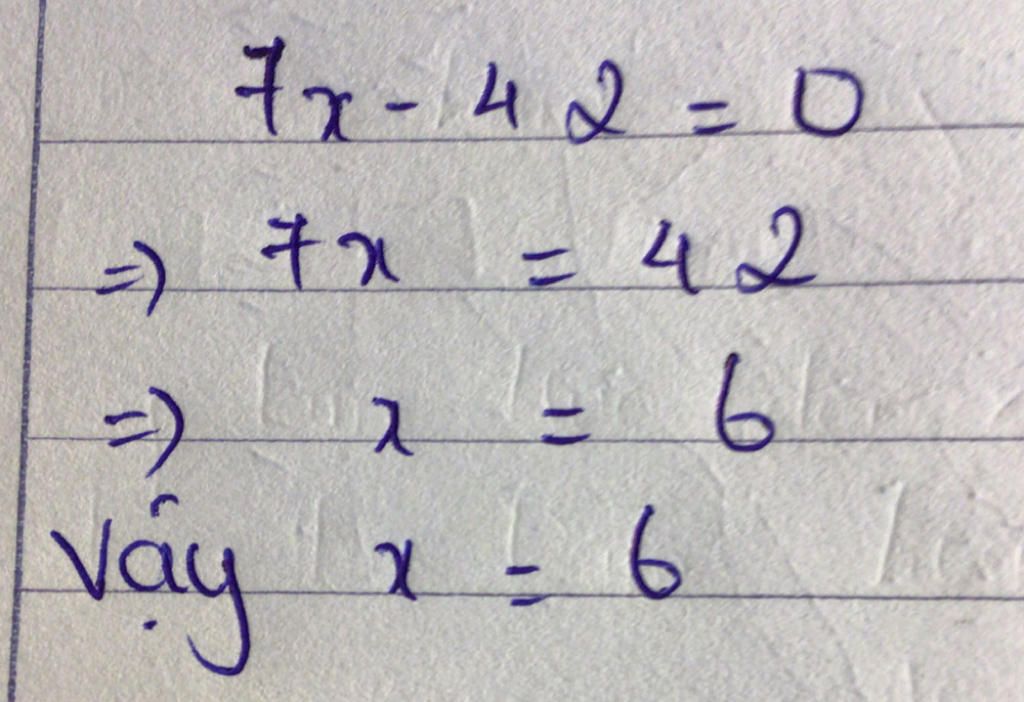 7x - 42 = 0
=> 7x = 42
=> x = 6
Vậy x = 6